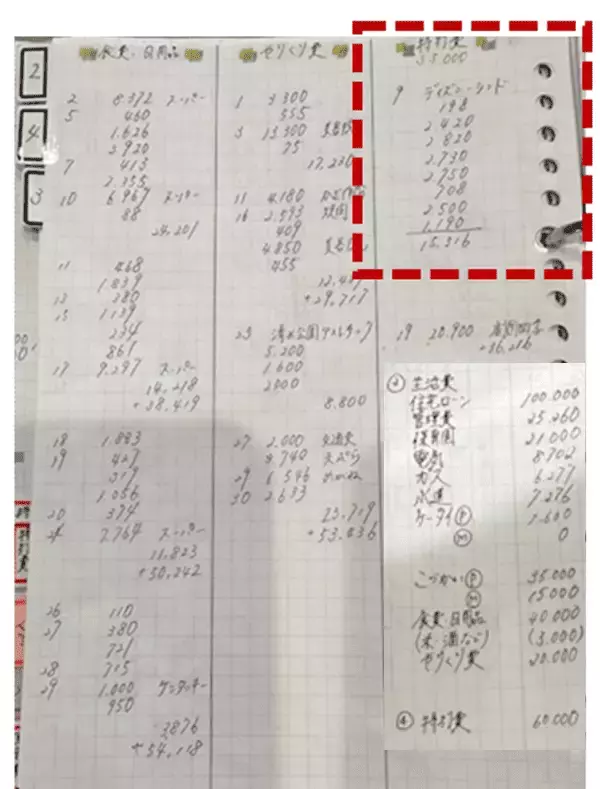 2
4
3
食費、日用品
2 8.372 スーパー
5 460
1.626
3.920
7 413
2.355
10 6.967 スーパー
88
24,201
11 468
1.839
13 280
15 1.139
234
861
17 9.297 スーパー
14,218
+38,419
18 1.883
19 427
317
1.056
20 374
21 7.764 スーパー
11,823
+50,242
26 110
27 380
721
28 715
29 1.000 ケンタッキー
950
3876
+54,118
やりくり費
1 3.300
555
3 13.300
75
17,230
11 4.180
16 2.593
409
4.850
455
+29,717
23 清水公園アスレチック
5.200
1.600
2000
8.800
27 2.000 交通費
8.740 天ぷら
29 6.546 めがね
30
+53,436
特別費
35,000
9 ディズニーランド
198
2.420
2.820
2.730
2.750
708
2.500
1.190
15,316
19 20.900
+36,216
③ 生活費
住宅ローン 100.000
管理費 25.260
保育園 21.000
電気 8.702
ガス 6.277
水道 7.276
ケータイ Ⓟ 1.600
Ⓜ 0
こづかい Ⓟ 35.000
Ⓜ 15000
食費、日用品 40.000
(米・酒など) (3.000)
やりくり費 20.000
④ 特別費 60.000
特別費